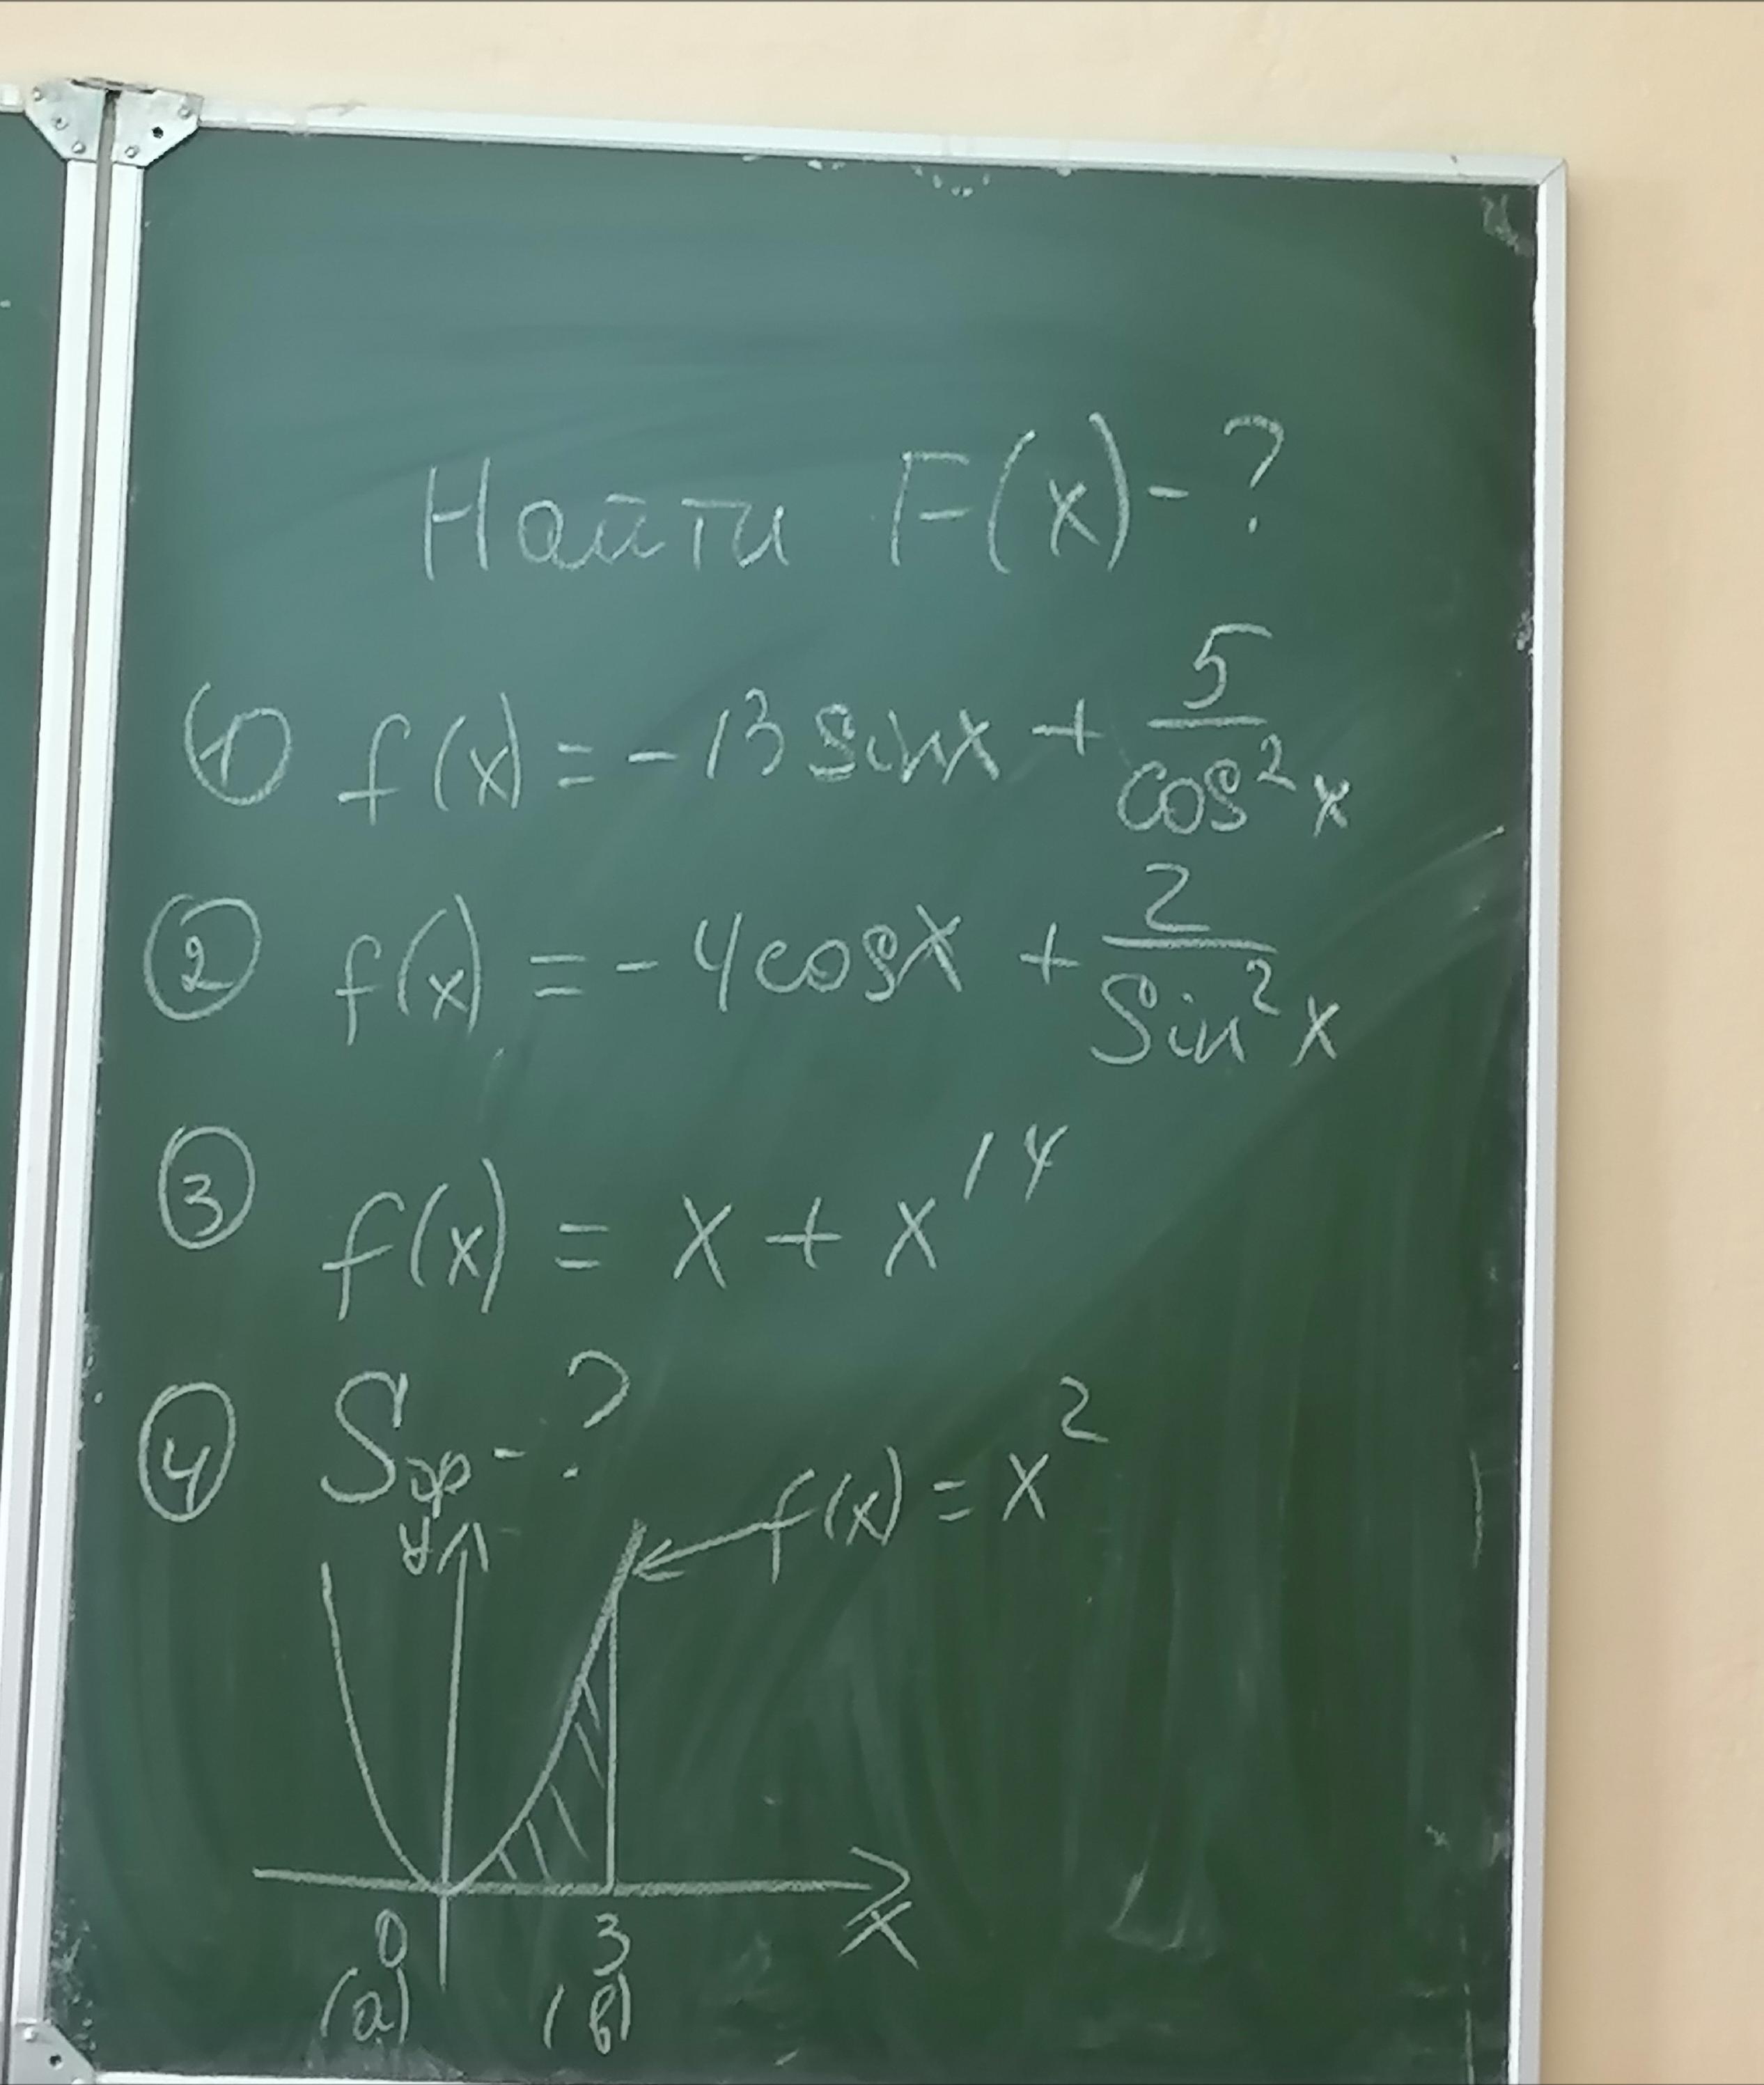 Найти F(x)-?
① f(x) = - 13 sinx + 5/cos²x
② f(x) = - 4cosx + 2/Sin²x
③ f(x) = x + x¹⁴
④ Sэф - ?
f(x) = x²
y
0 3 x
(a) (в)